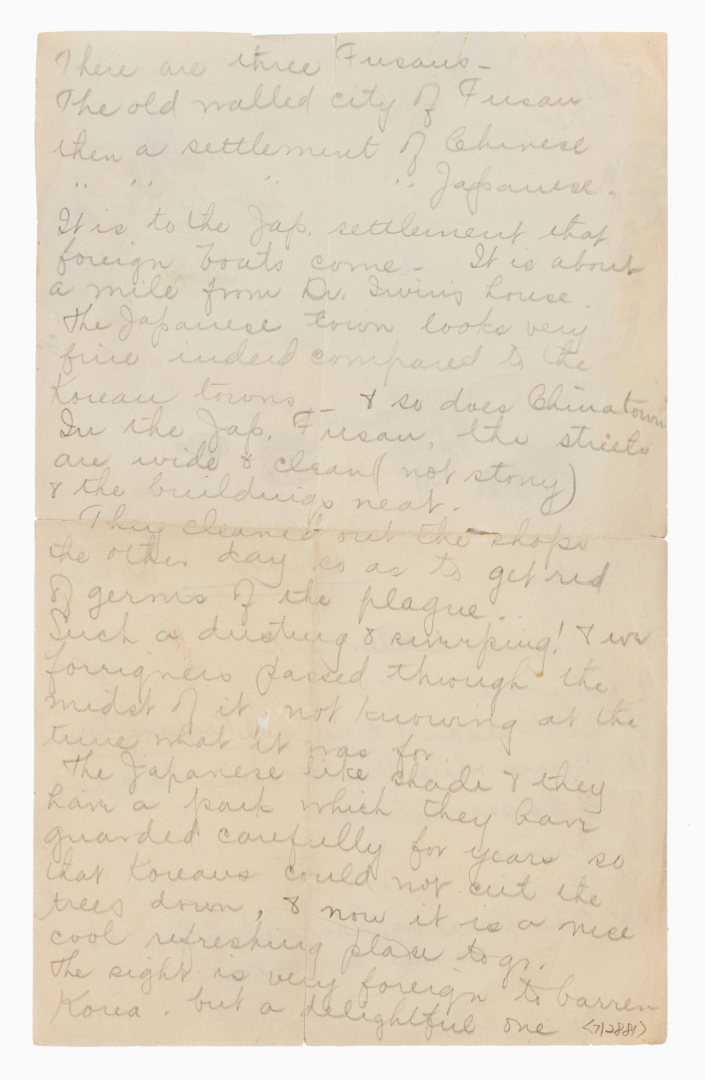 There are three Fusans -
The old walled city of Fusan
then a settlement of Chinese
" " " " Japanese -
It is to the Jap. settlement that
foreign boats come - It is about
a mile from Dr. Irvin's house.
The Japanese town looks very
fine indeed compared to the
Korean towns & so does Chinatown
In the Jap. Fusan, the streets
are wide & clean (not stony)
& the buildings neat.
They cleaned out the shops
the other day so as to get rid
of germs of the plague.
Such a dusting & sweeping! & we
foreigners passed through the
midst of it not knowing at the
time what it was for.
The Japanese like shade & they
have a park which they have
guarded carefully for years so
that Koreans could not cut the
trees down, & now it is a nice
cool refreshing place to go.
The sight is very foreign to barren
Korea. but a delightful one <712881>